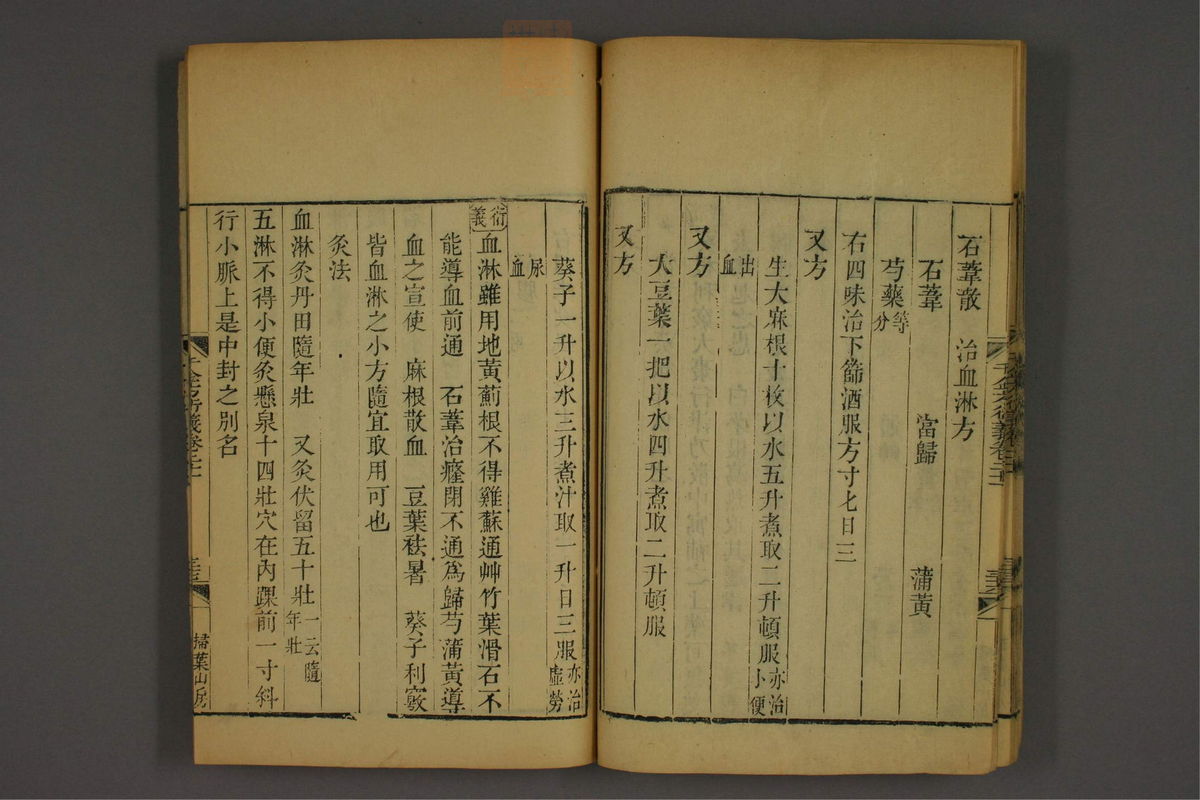 石韋散　治血淋方
石韋　當歸　蒲黃
芍藥等分
右四味治下篩酒服方寸匕日三
又方
生大麻根十枚以水五升煮取二升頓服亦治小便
出血
又方
大豆葉一把以水四升煮取二升頓服
又方
葵子一升以水三升煮汁取一升日三服亦治虛勞
尿血
衍義血淋雖用地黃薊根不得雞蘇通艸竹葉滑石不
能導血前通　石韋治癃閉不通爲歸芍蒲黃導
血之宣使　麻根散血　豆葉袪暑　葵子利竅
皆血淋之小方隨宜取用可也
灸法
血淋灸丹田隨年壯　又灸伏留五十壯一云隨年壯
五淋不得小便灸懸泉十四壯穴在內踝前一寸斜
行小脈上是中封之別名
千金方衍義卷二十一
掃葉山房